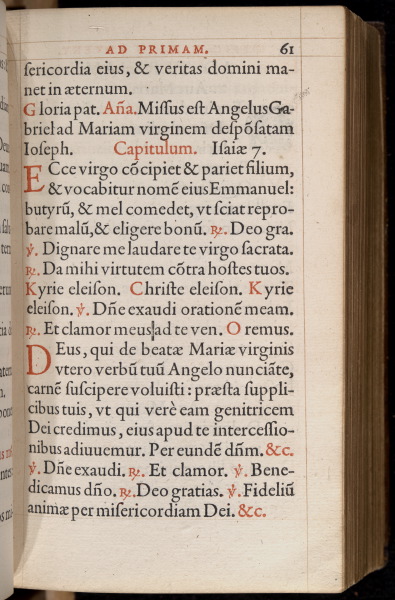 AD PRIMAM. 61
ſericordia eius, & veritas domini ma-
net in æternum.
Gloria pat. Aña. Miſſus eſt Angelus Ga-
briel ad Mariam virginem deſpõſatam
Ioſeph. Capitulum. Iſaiæ 7.
ECce virgo cõcipiet & pariet filium,
& vocabitur nomẽ eius Emmanuel:
butyrũ, & mel comedet, vt ſciat repro-
bare malũ, & eligere bonũ. ℟. Deo gra.
℣. Dignare me laudare te virgo ſacrata.
℟. Da mihi virtutem cõtra hoſtes tuos.
Kyrie eleiſon. Chriſte eleiſon. Kyrie
eleiſon. ℣. Dñe exaudi orationẽ meam.
℟. Et clamor meus ad te ven. Oremus.
DEus, qui de beatæ Mariæ virginis
vtero verbũ tuũ Angelo nunciãte,
carnẽ ſuſcipere voluiſti: præſta ſuppli-
cibus tuis, vt qui verè eam genitricem
Dei credimus, eius apud te interceſſio-
nibus adiuuemur. Per eundẽ dñm. &c.
℣. Dñe exaudi. ℟. Et clamor. ℣. Bene-
dicamus dño. ℟. Deo gratias. ℣. Fideliũ
animæ per miſericordiam Dei. &c.